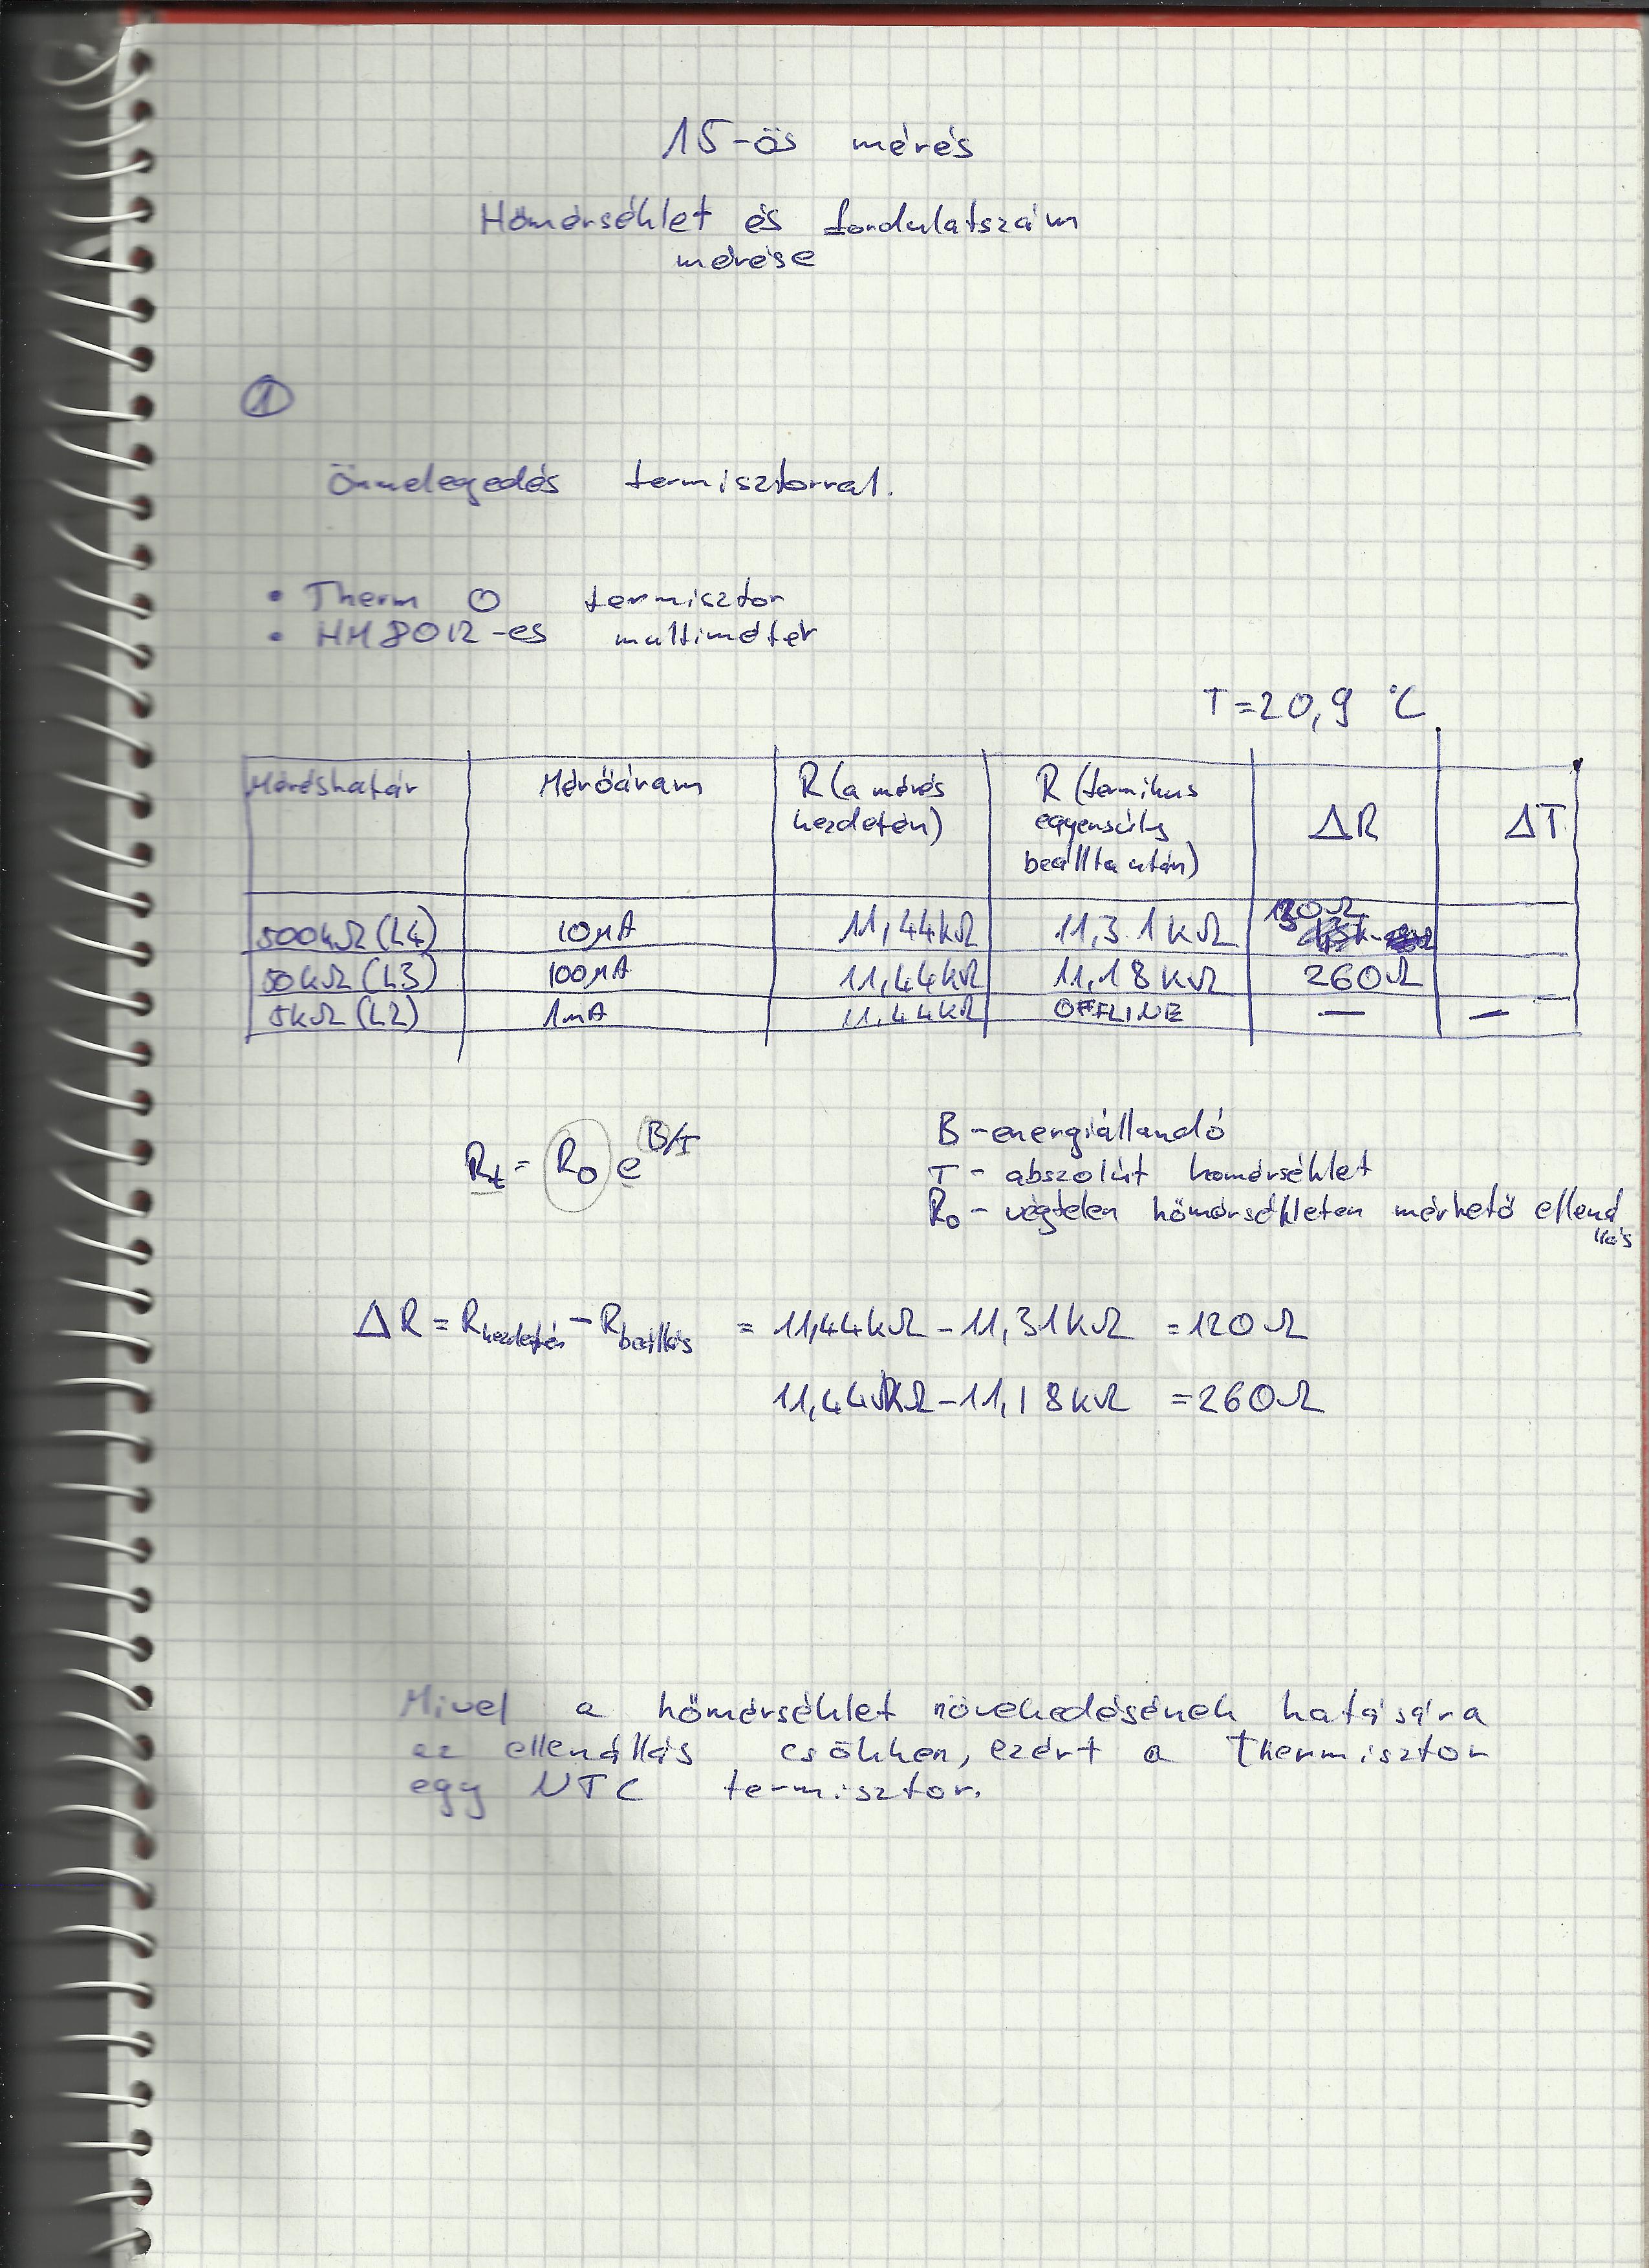 15-ös mérés
Hőmérséklet és fordulatszám
mérése
1
Önmelegedés termisztorral.
• Therm O termisztor
• HM8012-es multiméter
T=20,9 °C
Méréshatár Mérőáram R (a mérés kezdetén) R (termikus egyensúly beállta után) ΔR ΔT
500kΩ (L4) 10μA 11,44kΩ 11,31kΩ 130Ω
50kΩ (L3) 100μA 11,44kΩ 11,18kΩ 260Ω
5kΩ (L2) 1mA 11,44kΩ OFFLINE — —
Rt = R0 e^B/T
B - energiállandó
T - abszolút homérséklet
R0 - végtelen hőmérsékleten mérhető ellenállás
ΔR = Rkezdetén - Rbeállás = 11,44kΩ - 11,31kΩ = 120Ω
11,44kΩ - 11,18kΩ = 260Ω
Mivel a hőmérséklet növekedésének hatására
az ellenállás csökken, ezért a Thermisztor
egy NTC termisztor.